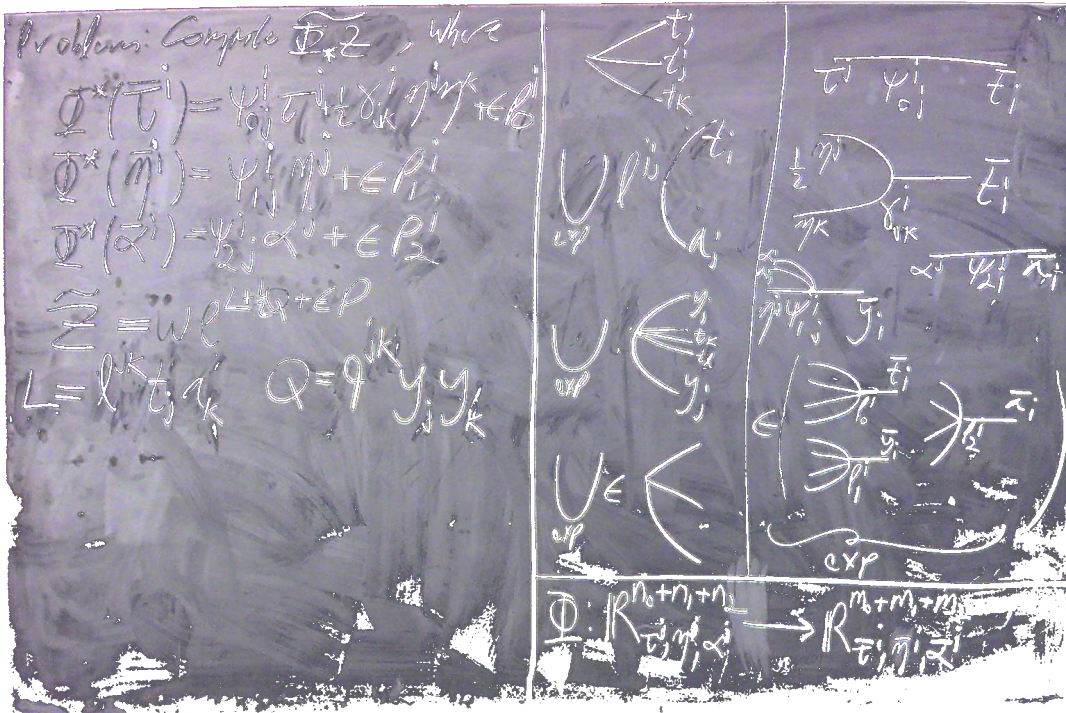 Problem: Compute \widetilde{Φ_* Z}, where
Φ^*(\bar{τ}^i) = ψ_{0j}^i τ^j + \frac{1}{2} γ_{jk}^i η^j η^k + ε P_0^i
Φ^*(\bar{η}^i) = ψ_{1j}^i η^j + ε P_1^i
Φ^*(\bar{α}^i) = ψ_{2j}^i α^j + ε P_2^i
\widetilde{Z} = w e^{L + \frac{1}{2} Q + ε P}
L = l^{jk} t_j a_k Q = q^{jk} y_j y_k
t_i
t_j
t_k
∪ exp l^{ij} t_i a_j
∪ exp y_i t_k u y_j
∪ exp ε
τ^j ψ_{0j}^i \bar{t}_i
\frac{1}{2} η^j η^k γ_{jk}^i \bar{t}_i
α^j ψ_{2j}^i \bar{a}_i
η^j ψ_{1j}^i \bar{y}_i
ε ( \bar{t}_i P_0^i \bar{a}_i P_2^i
\bar{y}_i P_1^i )
exp
Φ: R^{n_0+n_1+n_2}_{τ^j, η^j, α^j} → R^{m_0+m_1+m_2}_{\bar{τ}^i, \bar{η}^i, \bar{α}^i}